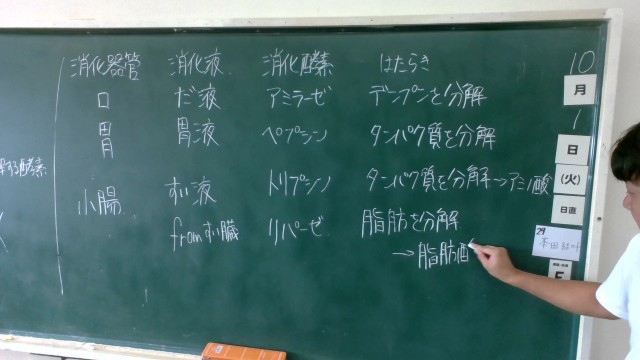 消化器管 消化液 消化酵素 はたらき
口 だ液 アミラーゼ デンプンを分解
胃 胃液 ペプシン タンパク質を分解
小腸 すい液 トリプシン タンパク質を分解→アミノ酸
fromすい臓 リパーゼ 脂肪を分解
→脂肪酉
する酵素
10
月
1
日
(火)
日直
29